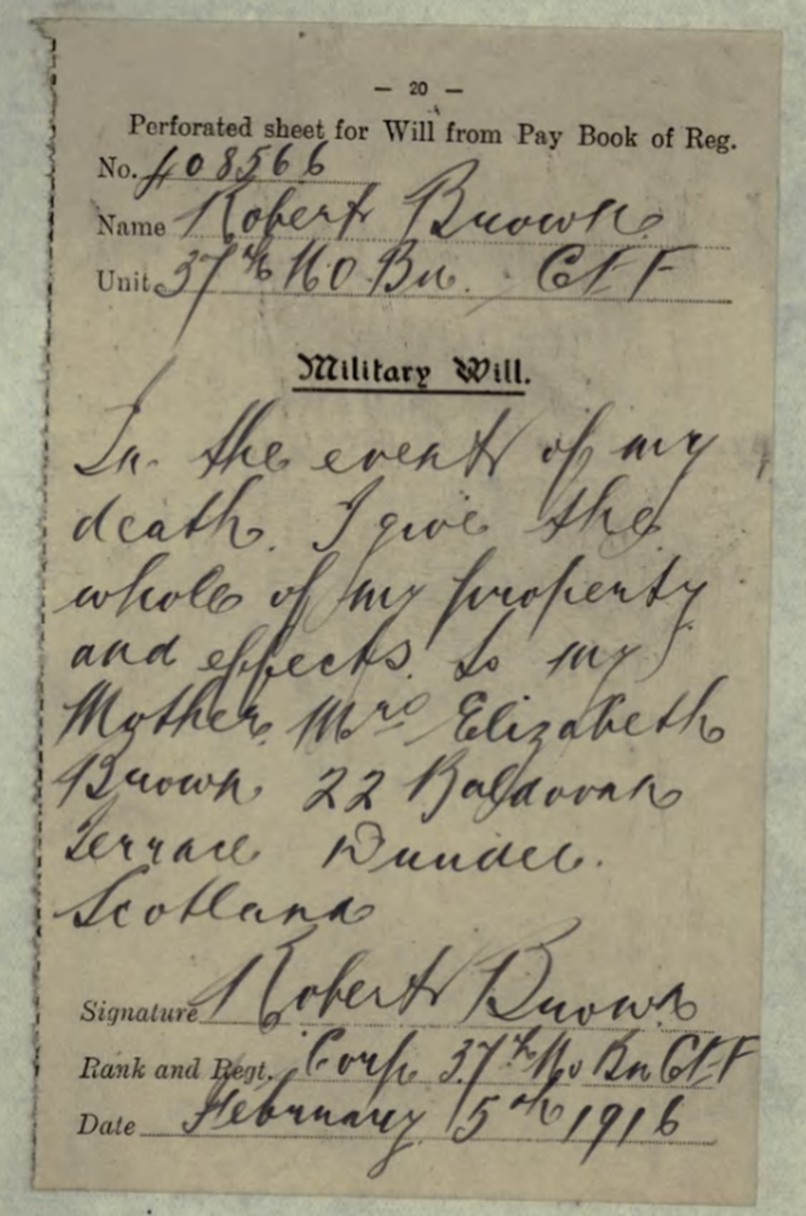 — 20 —
Perforated sheet for Will from Pay Book of Reg.
No. 408566
Name Robert Brown
Unit 37th NO Bn. CEF
Military Will.
In the event of my
death. I give the
whole of my property
and effects. to my
Mother. Mrs Elizabeth
Brown 22 Baldovan
Terrace Dundee.
Scotland
Signature Robert Brown
Rank and Regt. Corp 37th No Bn CEF
Date February 5th 1916